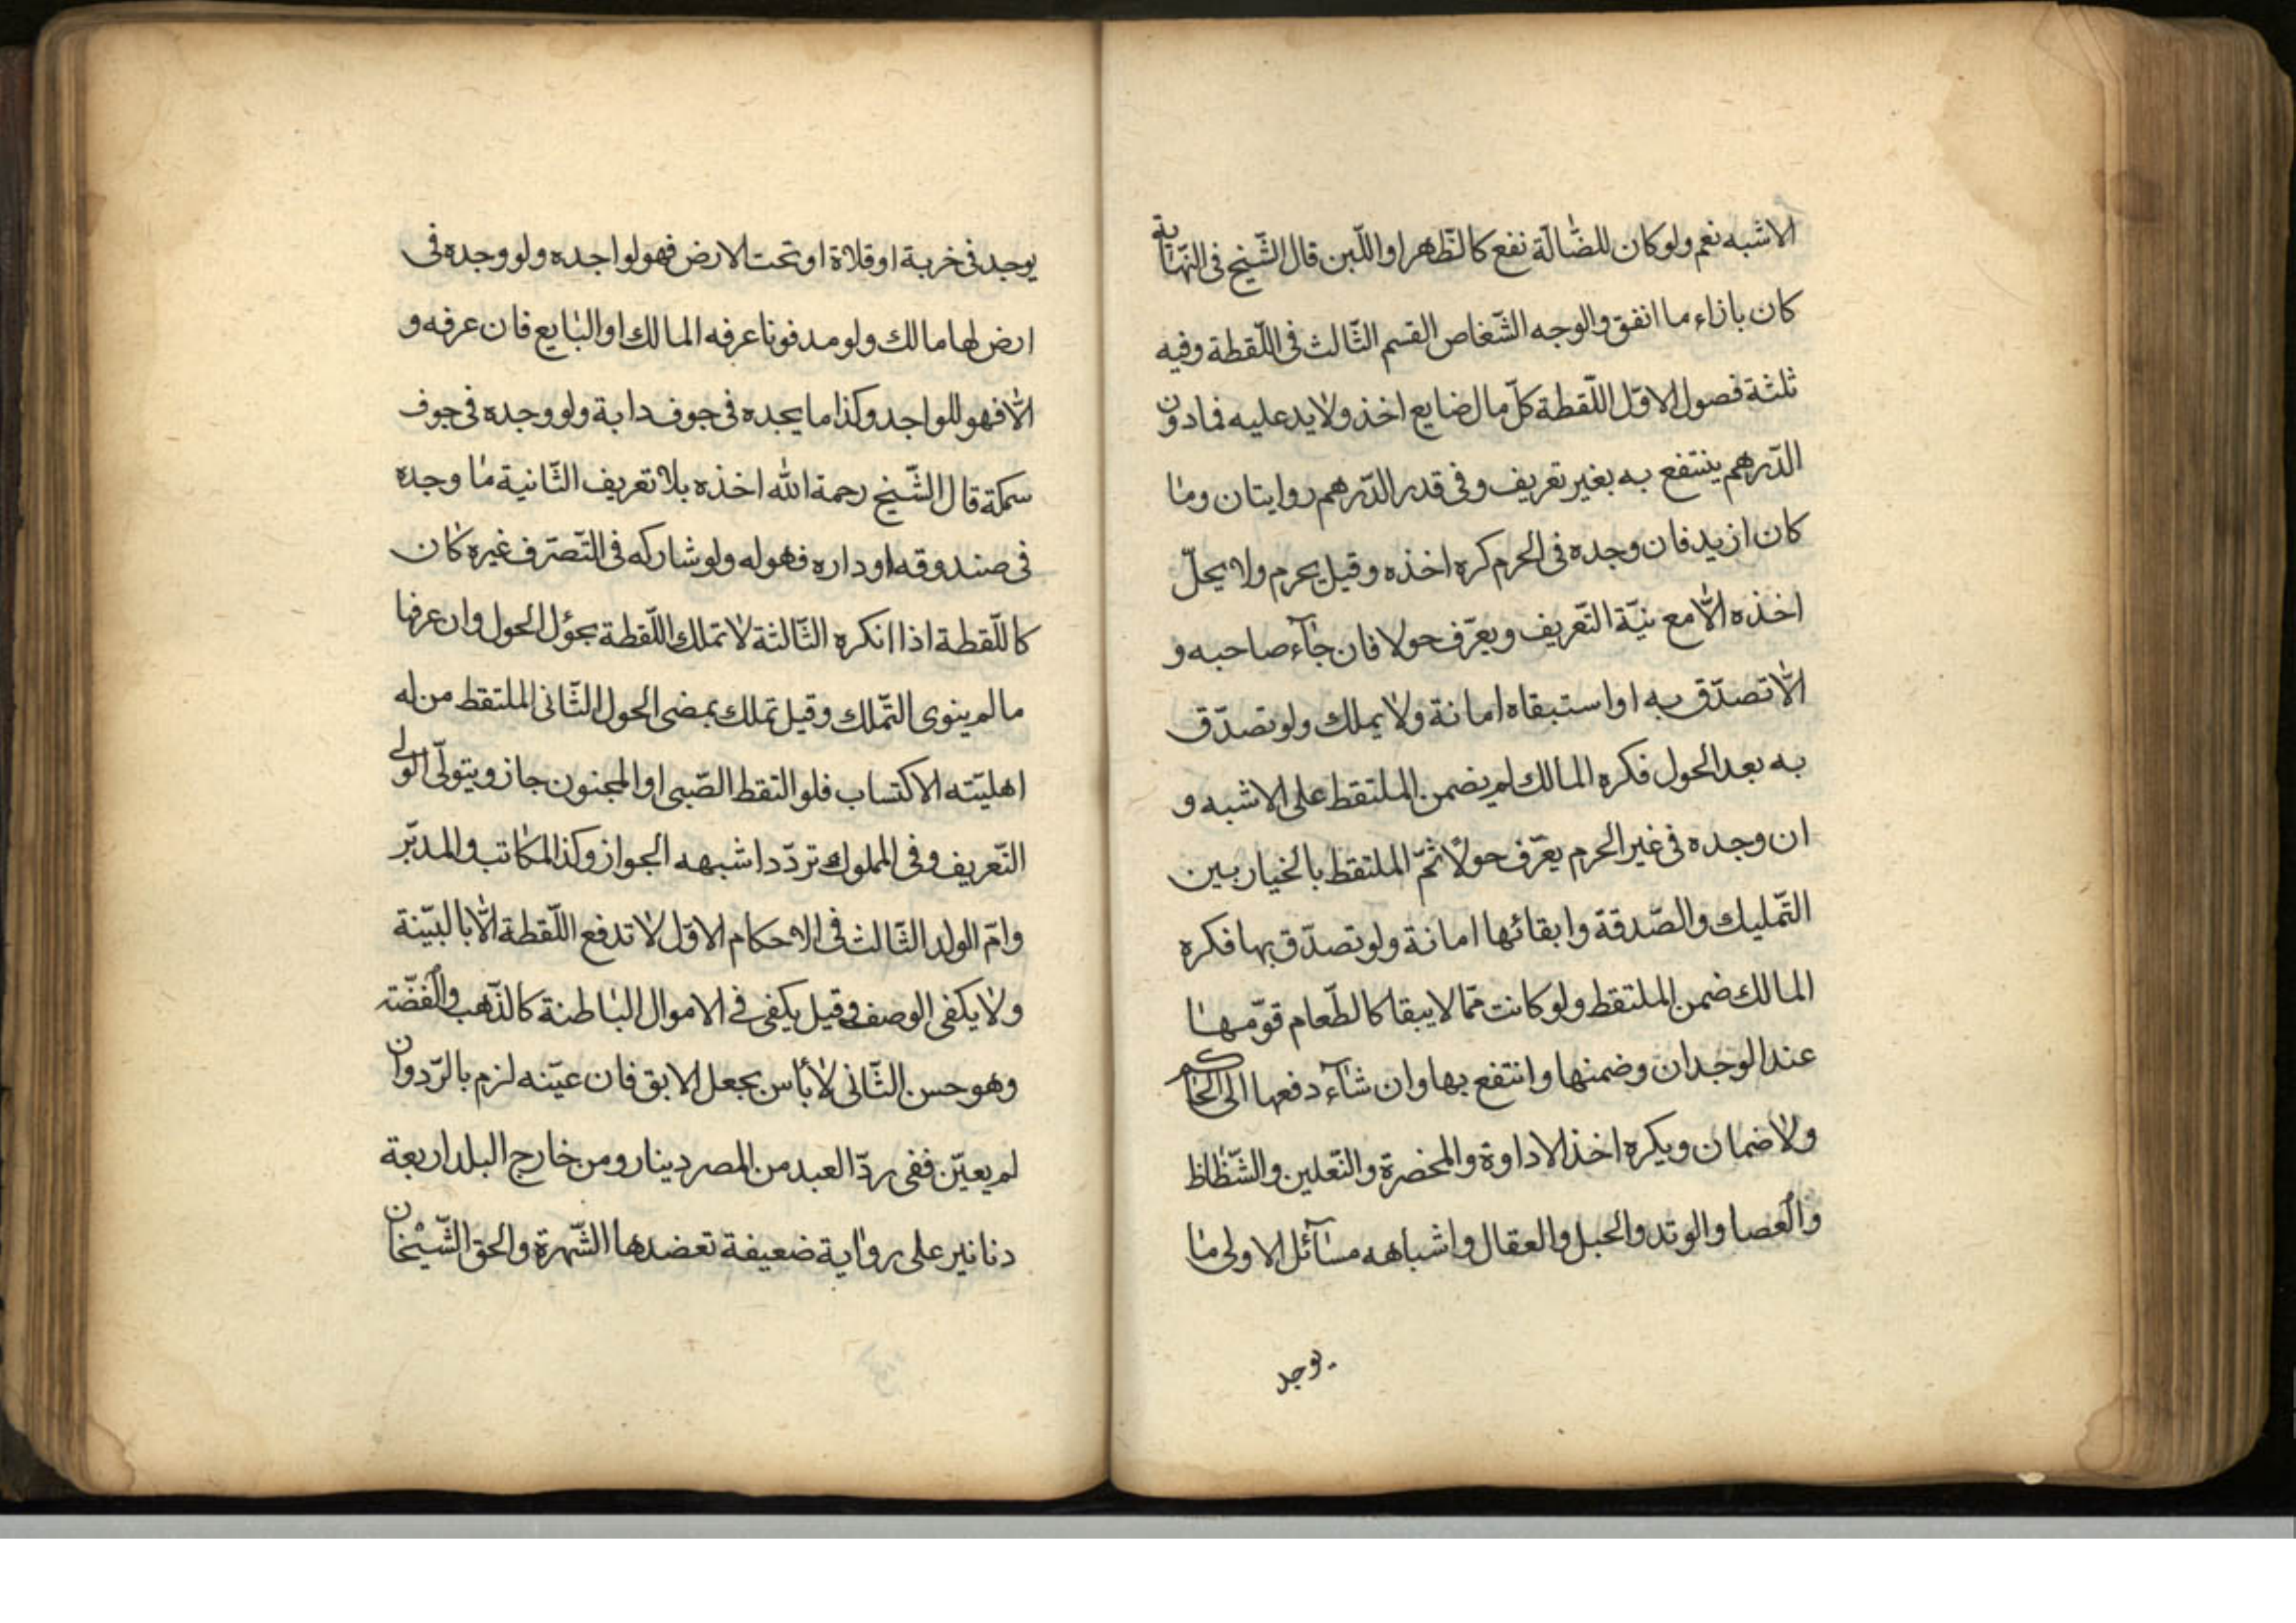 الاشبه نعم ولو كان للضّالّة نفع كالظّهر او اللّبن قال الشّيخ فى النّهاية
كان بازاء ما انفق والوجه الشّغاص القسم الثّالث فى اللّقطة وفيه
ثلثة فصول الاوّل اللّقطة كلّ مال ضايع اخذ ولا يد عليه فما دون
الدّرهم ينتفع به بغير تعريف وفى قدر الدّرهم روايتان وما
كان ازيد فان وجده فى الحرم كره اخذه وقيل يحرم ولا يحلّ
اخذه الّا مع نيّة التّعريف ويعرّف حولا فان جآء صاحبه و
الّا تصدّق به او استبقاه امانة ولا يملك ولو تصدّق
به بعد الحول فكره المالك لم يضمن الملتقط على الاشبه و
ان وجده فى غير الحرم يعرّف حولًا ثمّ الملتقط بالخيار بين
التّمليك والصّدقة وابقائها امانة ولو تصدّق بها فكره
المالك ضمن الملتقط ولو كانت ممّا لا يبقا كالطّعام قوّمها
عند الوجدان وضمنها وانتفع بها وان شآء دفعها الى الحاكم
ولا ضمان ويكره اخذ الاداوة والمخضرة والنّعلين والشّظاظ
والعصا والوتد والحبل والعقال واشباهه مسآئل الاولى ما
يوجد
يوجد فى خربة او قلاة او تحت الارض فهو لواجده ولو وجده فى
ارض لها مالك ولو مدفونا عرفه المالك او البايع فان عرفه و
الّا فهو للواجد وكذا ما يجده فى جوف دابة ولو وجده فى جوف
سمكة قال الشّيخ رحمة الله اخذه بلا تعريف الثّانية ما وجده
فى صندوقه او داره فهو له ولو شاركه فى التّصرّف غيره كان
كاللّقطة اذا انكره الثّالثة لا تملك اللّقطة بحؤل الحول وان عرفها
ما لم ينوى التّملك وقيل تملك بمضى الحول الثّانى الملتقط من له
اهليّته الاكتساب فلو التقط الصّبى او المجنون جاز ويتولّى الولى
التّعريف وفى المملوك تردّد اشبهه الجواز وكذا المكاتب والمدبّر
وامّ الولد الثّالث فى الاحكام الاوّل لا تدفع اللّقطة الّا بالبيّنة
ولا يكفى الوصف وقيل يكفى فى الاموال الباطنة كالذّهب والفضّة
وهو حسن الثّانى لا بأس بجعل الابق فان عيّنه لزم بالرّد وان
لم يعيّن ففى ردّ العبد من المصر دينار ومن خارج البلد اربعة
دنانير على رواية ضعيفة تعضدها الشّهرة والحق الشّيخان